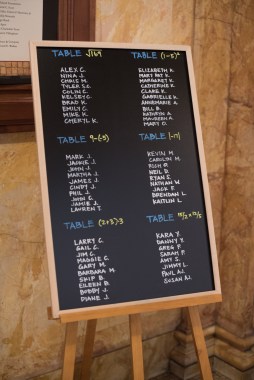 TABLE √169
ALEX C.
NINA J.
CHRIS M.
TYLER S.
COLIN C.
KELSEY C.
BRAD K.
EMILY C.
MIKE C.
CHERYL K.
TABLE (1-5)²
ELIZABETH K.
MARY PAT K.
MARGARET K.
CATHERINE K.
CLARE K.
GABRIELLE K.
ANNEMARIE A.
BILL B.
KATHRYN A.
MAUREEN A.
MARY O.
TABLE 9-(-5)
MARK J.
JACKIE J.
JOHN J.
MARTHA J.
JAMES J.
CINDY J.
PHIL J.
JOHN G.
JAMIE J.
LAUREN J.
TABLE |-17|
KEVIN M.
CAROLYN M.
RICH D.
NEIL D.
RYAN S.
NATHAN W.
JACK F.
BRENDAN L.
KAITLIN L.
TABLE (2+3)·3
LARRY C.
GAIL C.
JIM C.
MAGGIE C.
GARY M.
BARBARA M.
SKIP B.
EILEEN B.
BOBBY J.
DIANE J.
TABLE
KARA Y.
DANNY Y.
GREG P.
SARAH P.
AMY S.
JIMMY L.
PAUL A.
SUSAN A.